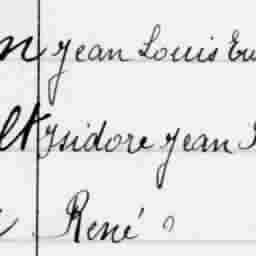 Jean Louis
Isidore Jean
René